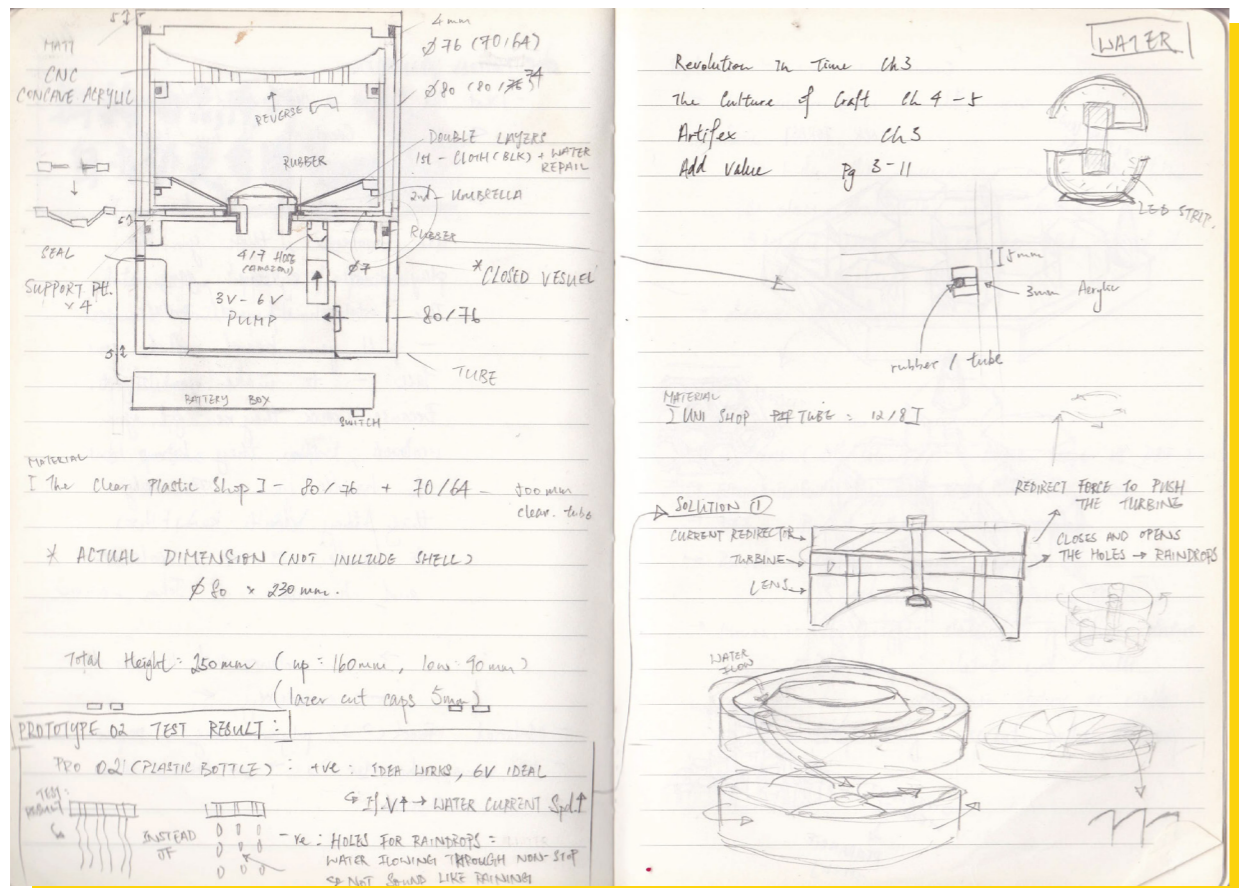 5.2
4mm
MATT
Ø76 (70/64)
CNC
CONCAVE ACRYLIC
Ø80 (80/76) 74
REVERSE
DOUBLE LAYERS
1st - CLOTH (BLK) + WATER
REPAIL
RUBBER
2nd - UMBRELLA
5.2
RUBBER
SEAL
4/7 HOSE
(AMAZON)
Ø7
* CLOSED VESUEL
SUPPORT Pt.
x 4
3V - 6V
PUMP
80/76
5.2
TUBE
BATTERY BOX
SWITCH
MATERIAL
[The Clear Plastic Shop] - 80/76 + 70/64 - 500mm
clear tube
* ACTUAL DIMENSION (NOT INCLUDE SHELL)
Ø80 x 230mm.
Total Height: 250mm (up: 160mm, low: 90mm)
(lazer cut caps 5mm)
PROTOTYPE 02 TEST RESULT:
PRO 02 (PLASTIC BOTTLE): +ve: IDEA WORKS, 6V IDEAL
If V↑ → WATER CURRENT Spd.↑
TEST:
RESULT
INSTEAD
OF
-ve: HOLES FOR RAINDROPS =
WATER FLOWING THROUGH NON-STOP
NOT SOUND LIKE RAINING
WATER
Revolution in Time Ch3
The Culture of Craft Ch 4-5
Artifex Ch3
Add value Pg 3-11
LED STRIP.
5mm
3mm Acrylic
rubber / tube
MATERIAL
[UNI SHOP TUBE: 12/8]
SOLUTION ①
CURRENT REDIRECTOR
TURBINE
LENS
REDIRECT FORCE TO PUSH
THE TURBINE
CLOSES AND OPENS
THE HOLES → RAINDROPS
WATER
FLOW